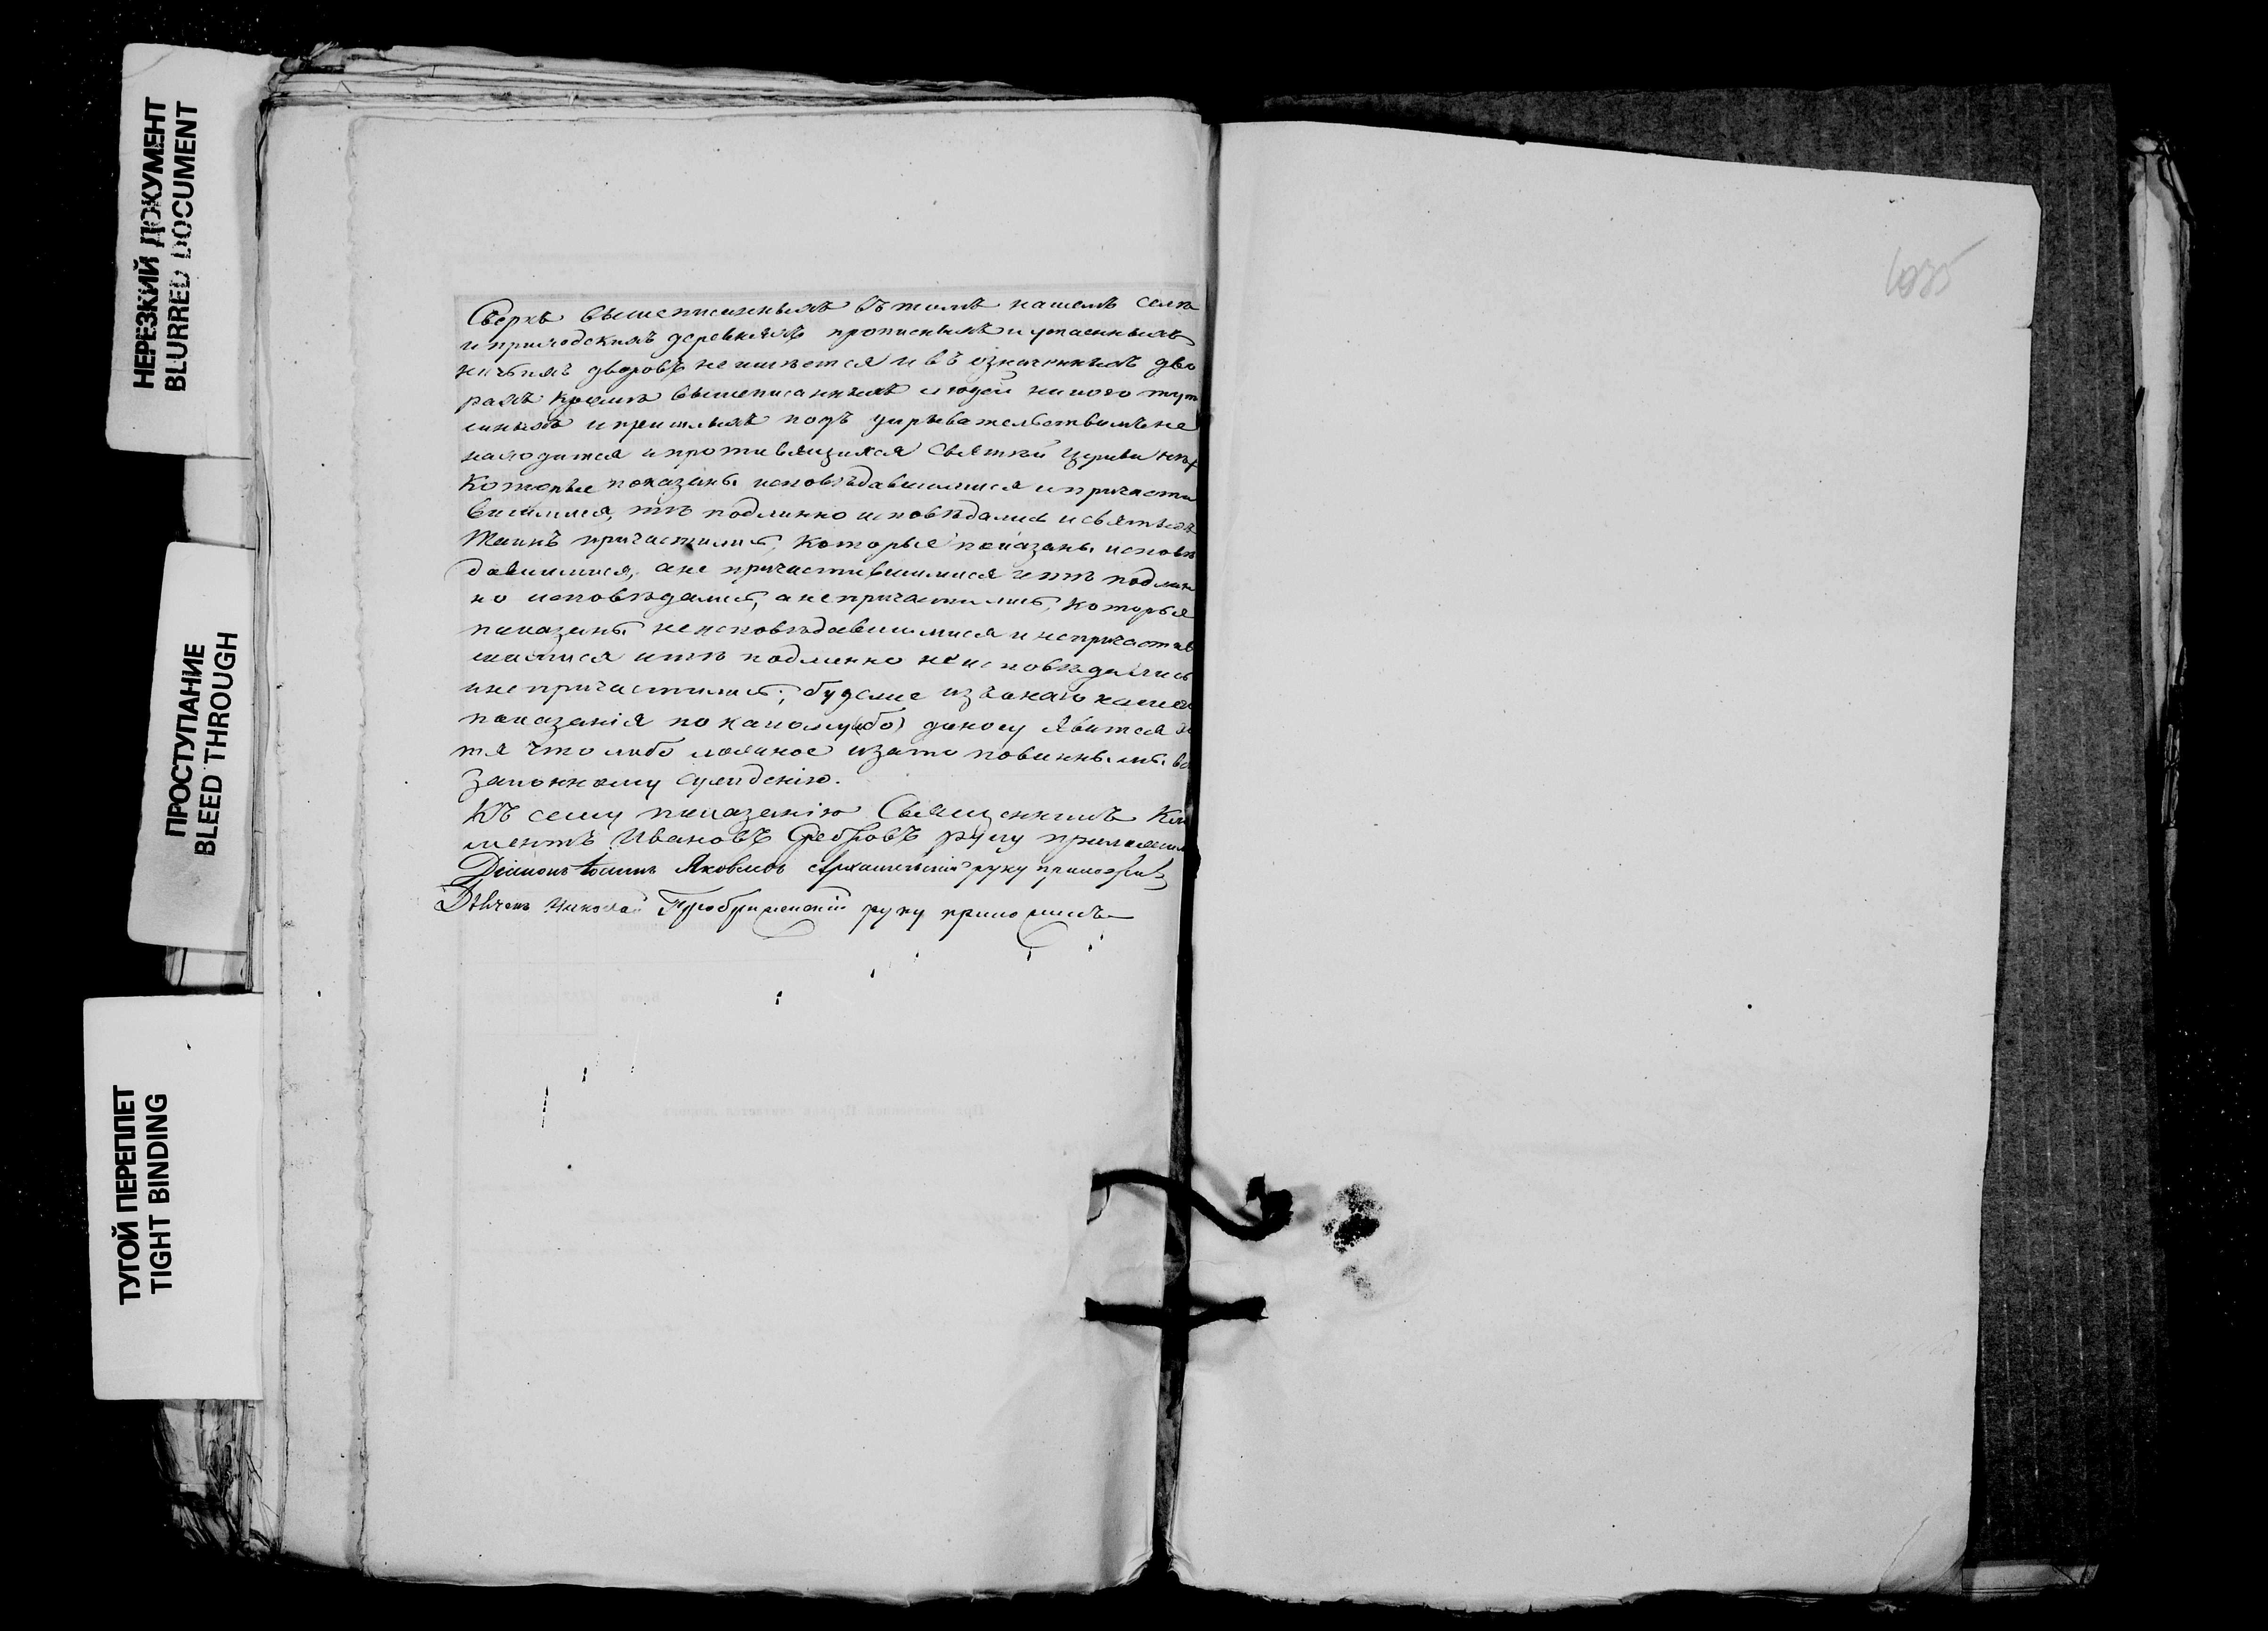 НЕРЕЗКИЙ ДОКУМЕНТ
BLURRED DOCUMENT
ПРОСТУПАНИЕ
BLEED THROUGH
ТУГОЙ ПЕРЕПЛЕТ
TIGHT BINDING
Сверхъ вышеписанныхъ въ томъ нашемъ селѣ
и приходскихъ деревняхъ прописныхъ и утаенныхъ
ничьихъ дворовъ не имѣется и въ означенныхъ дво
рахъ кромѣ вышеписанныхъ людей никого тут
шныхъ и пришлыхъ подъ укрывательствомъ не
находится и противящихся Святѣй Церкви нѣт
Которые показаны исповѣдавшимися и причасти
вшимися, тѣ подлинно исповѣдались и святыхъ
Таинъ причастились, Которые показаны исповѣ
давшимися, а не причастившимися и тѣ подлин
но исповѣдались, а не причастились, Которые
показаны не исповѣдавшимися и не причастив
шимися и тѣ подлинно не исповѣдались
и не причастились; буде же изъ онаго нашего
показанія по какому либо доносу явится хо
тя что либо ложное и за то повинны мы
законному сужденію.
Къ сему показанію Священникъ Кли
ментъ Ивановъ Серебровъ руку приложил
Діаконъ Іоаннъ Яковлевъ Архангельскій руку приложилъ
Дьячекъ Николай Преображенскій руку приложилъ